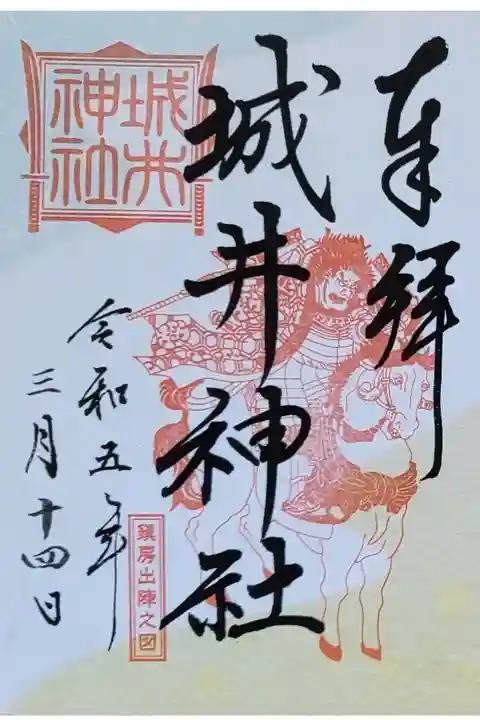 奉拝
城井神社
城井
神社
令和五年
三月十四日
鎮房出陣之図